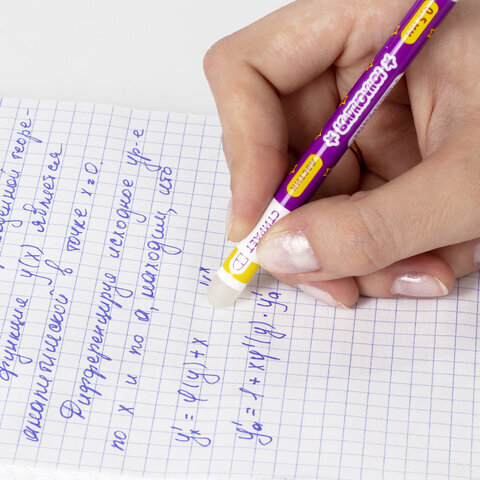 теоре-
функция y(x) является
аналитической в точке x=0.
Дифференцируя исходное ур-е
по x и по a, находим, что
y'ₓ = φ(y) + x
y'ₐ = 1 + xφ'(y) · y'ₐ
СТИРАЕТ
ЛАСТИК